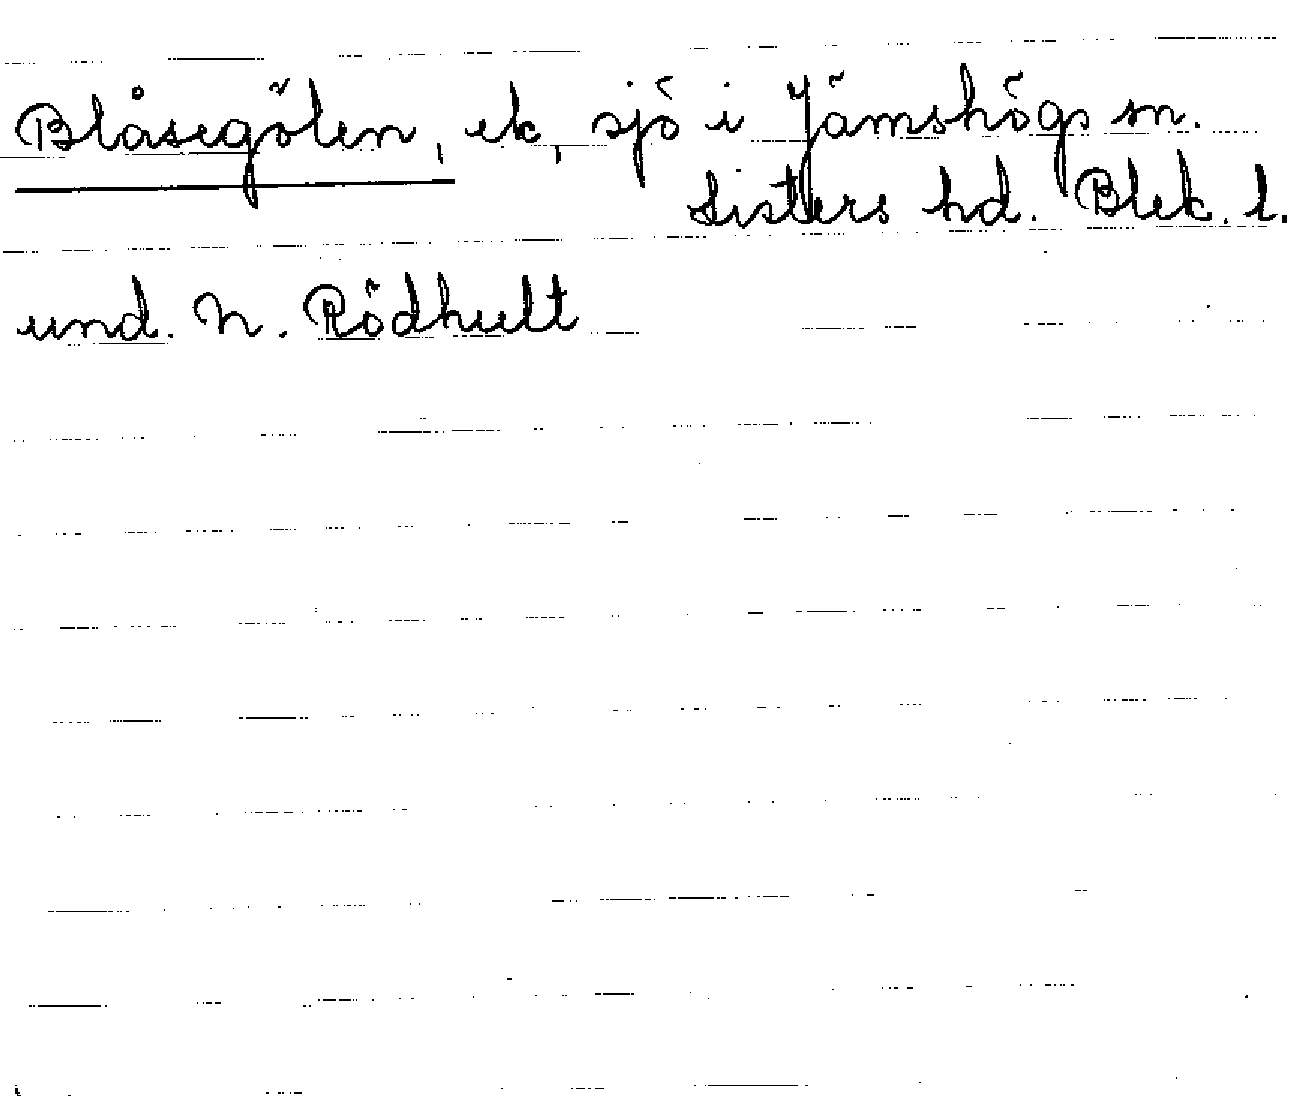 Blåsegölen, ek, sjö i Jämshögs sn.
Listers hd. Blek. l.
und. N. Rödhult